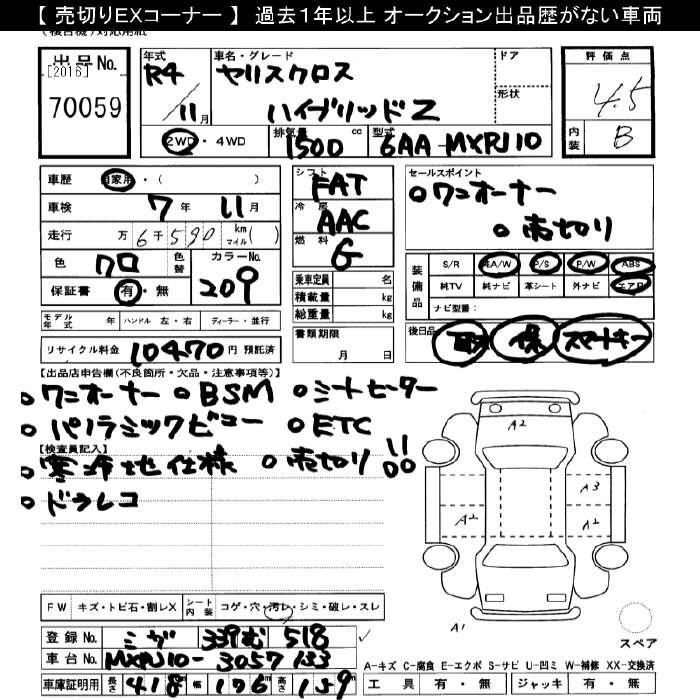 【 売切りEXコーナー 】 過去1年以上 オークション出品歴がない車両
出品 No.
[2016]
70059
年式
R4/11月
車名・グレード
ヤリスクロス
ハイブリッドZ
ドア
形状
評価点
4.5
内装
B
2WD・4WD
排気量
1500 cc
型式
6AA-MXPJ10
車歴 自家用・( )
車検 7年 11月
走行 万 6千 590 km マイル( )
色 クロ
色替
カラーNo.
209
保証書 有・無
シフト
FAT
冷房
AAC
燃料
G
乗車定員 名
積載量 kg
総重量 kg
書類期限
月 日
セールスポイント
○ワンオーナー
○売切り
装備品
S/R 純A/W P/S P/W ABS
純TV 純ナビ 革シート 外ナビ エアB
ナビ型番:
後日品
取 保 スマートキー
モデル年式 年 ハンドル 左・右 ディーラー・並行
リサイクル料金 10470 円 預託済
【出品店申告欄(不良箇所・欠品・注意事項等)】
○ワンオーナー ○BSM ○シートヒーター
○パノラミックビュー ○ETC
【検査員記入】
○寒冷地仕様 ○売切り!!
○ドラレコ
A2
A3
A2
A2
A1
スペア
FW キズ・トビ石・割レX シート内装 コゲ・穴・汚レ・シミ・破レ・スレ
登録 No. 518
車台 No. MXPJ10-3057133
車庫証明用 長さ 418 幅 176 高さ 159
A-キズ C-腐食 E-エクボ S-サビ U-凹ミ W-補修 XX-交換済
工具 有・無 ジャッキ 有・無